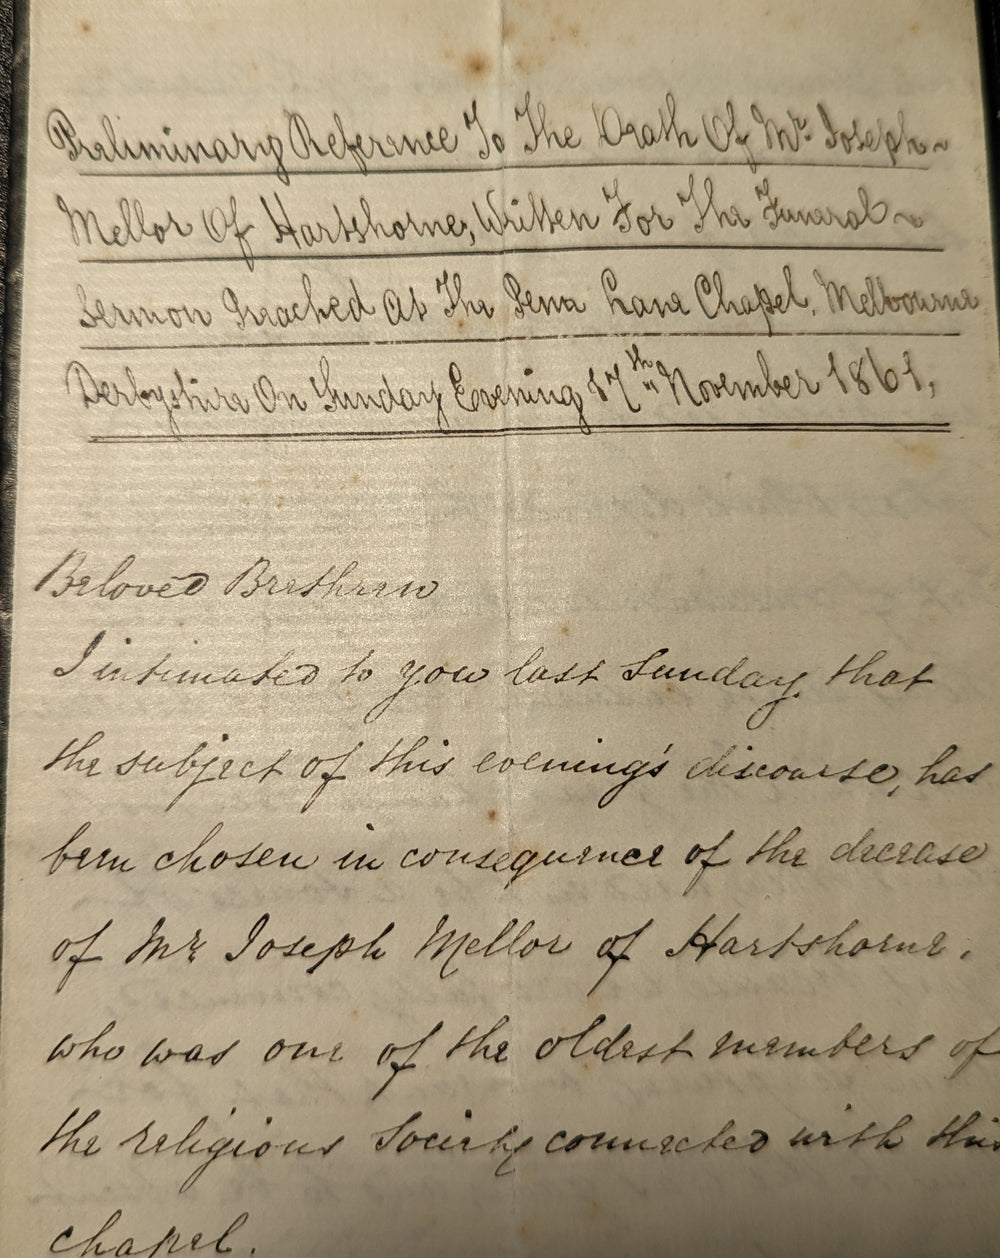 Preliminary Reference To The Death Of Mr. Joseph
Mellor Of Hartshorne, Written For The Funeral
Sermon Preached At The Penn Lane Chapel, Melbourne
Derbyshire On Sunday Evening 17th November 1861,
Beloved Brethren
I intimated to you last Sunday, that
the subject of this evening's discourse, has
been chosen in consequence of the decease
of Mr Joseph Mellor of Hartshorne,
who was one of the oldest members of
the religious Society connected with this
chapel.